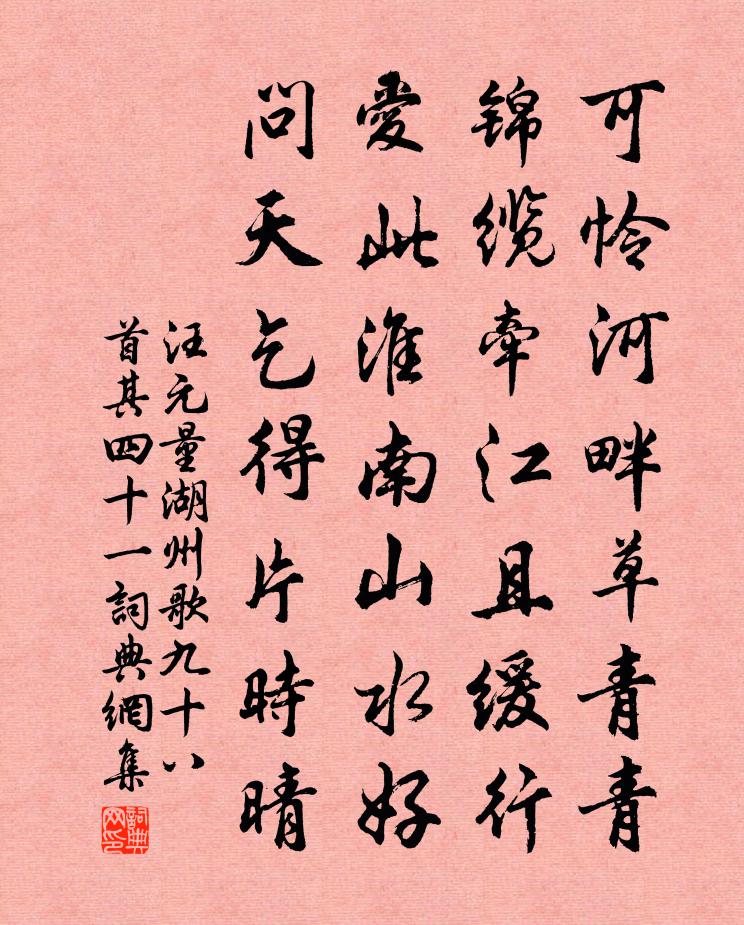 可怜河畔草青青
锦缆牵江且缓行
愛此淮南山水好
问天乞得片時晴
汪元量湖州歌九十八
首其四十一詞典網集
詞典
网印